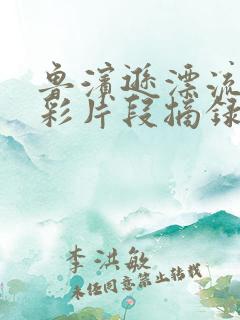 鲁滨逊漂流
彩片段摘录
李洪敏
未经同意禁止转载